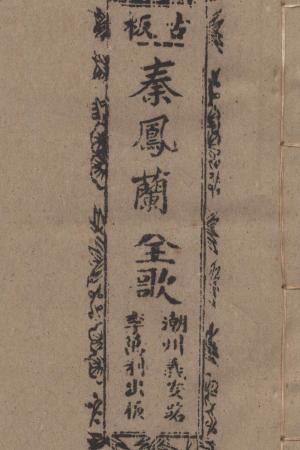 古板
秦鳳蘭全歌
潮州義安路
李萬利出版